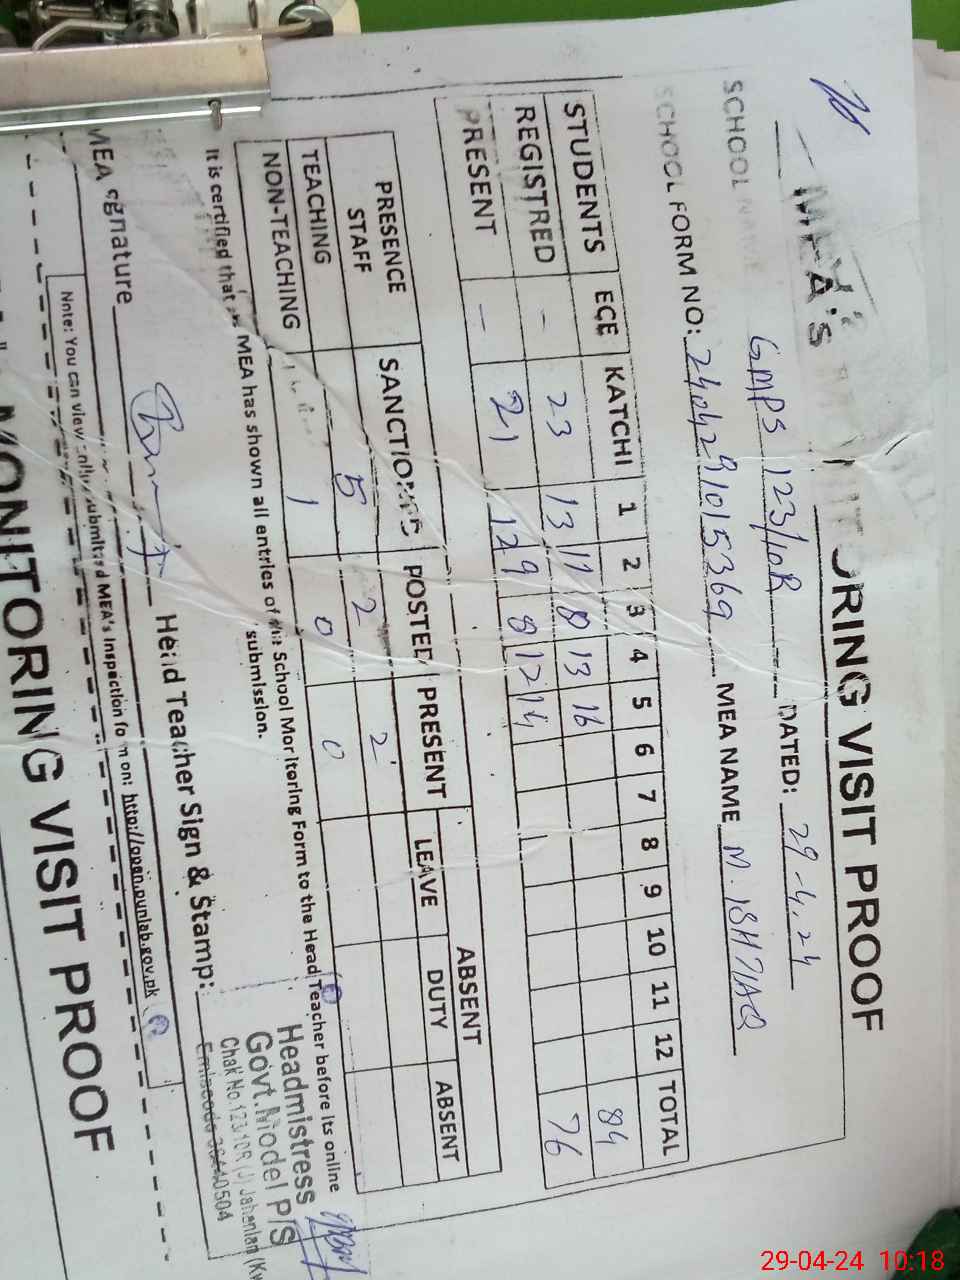 MEA's MONITORING VISIT PROOF
SCHOOL NAME GMPS 123/10R DATED: 29-4.24
SCHOOL FORM NO: 2404291015369 MEA NAME M. ISHTIAQ
STUDENTS ECE KATCHI 1 2 3 4 5 6 7 8 9 10 11 12 TOTAL
REGISTRED - 23 13 11 8 13 16 84
PRESENT - 21 12 9 8 12 14 76
PRESENCE STAFF SANCTIONED POSTED PRESENT ABSENT
LEAVE DUTY ABSENT
TEACHING 5 2 2
NON-TEACHING 1 0 0
It is certified that MEA has shown all entries of this School Monitoring Form to the Head Teacher before its online
submission.
MEA signature Head Teacher Sign & Stamp:
Headmistress
Govt. Model P/S
Chak No.123/10R (J) Jahanian (Kw
Emiscode 36440504
Note: You can view online submitted MEA's Inspection form on: http://open.punjab.gov.pk
MONITORING VISIT PROOF
29-04-24 10:18